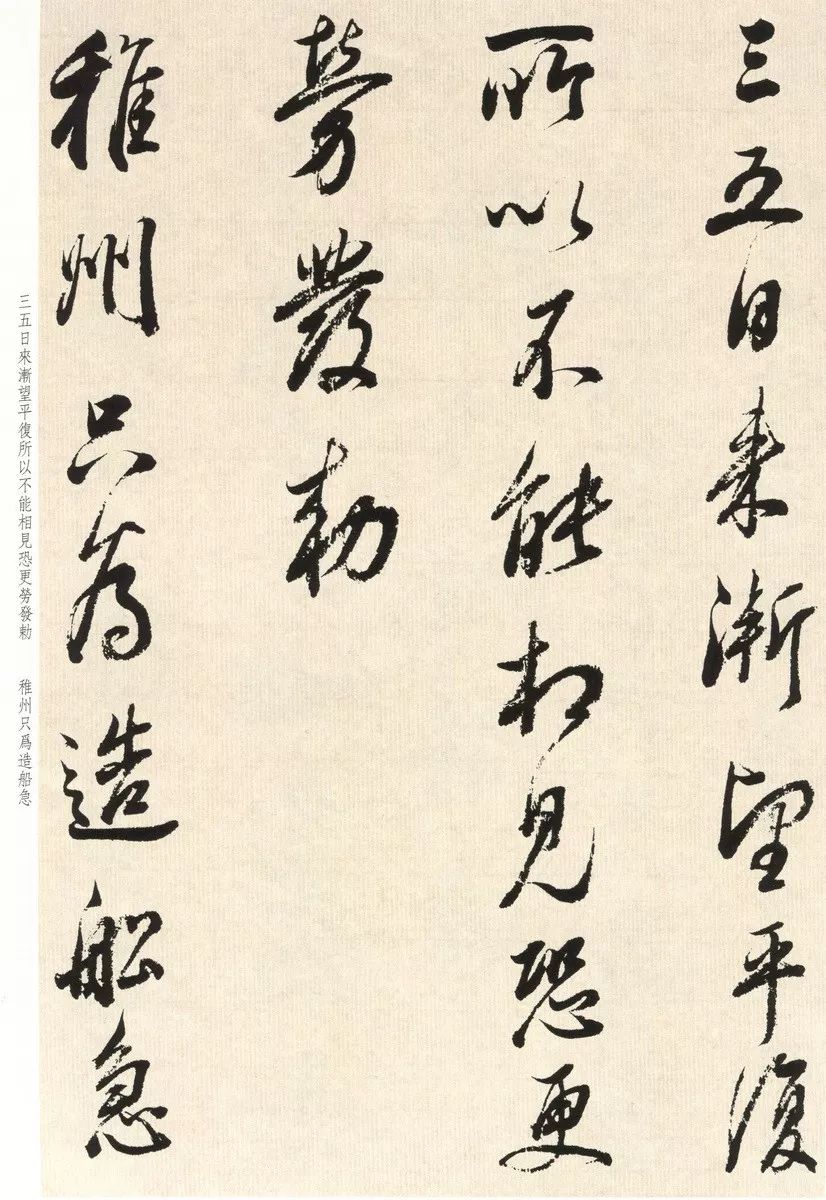 三五日来漸望平復
所以不能相見恐更
勞發勅
稚州只為造舩急
三五日來漸望平復所以不能相見恐更勞發勅　稚州只爲造船急